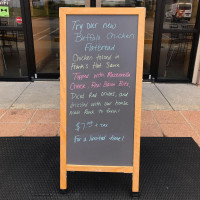 Try our new
Buffalo Chicken
Flatbread
Chicken tossed in
Frank's Hot Sauce
Topped with Mozzarella
Cheese, Real Bacon Bits,
Diced Red Onions, and
drizzled with our house
made
$7.99 + tax
For a limited time!